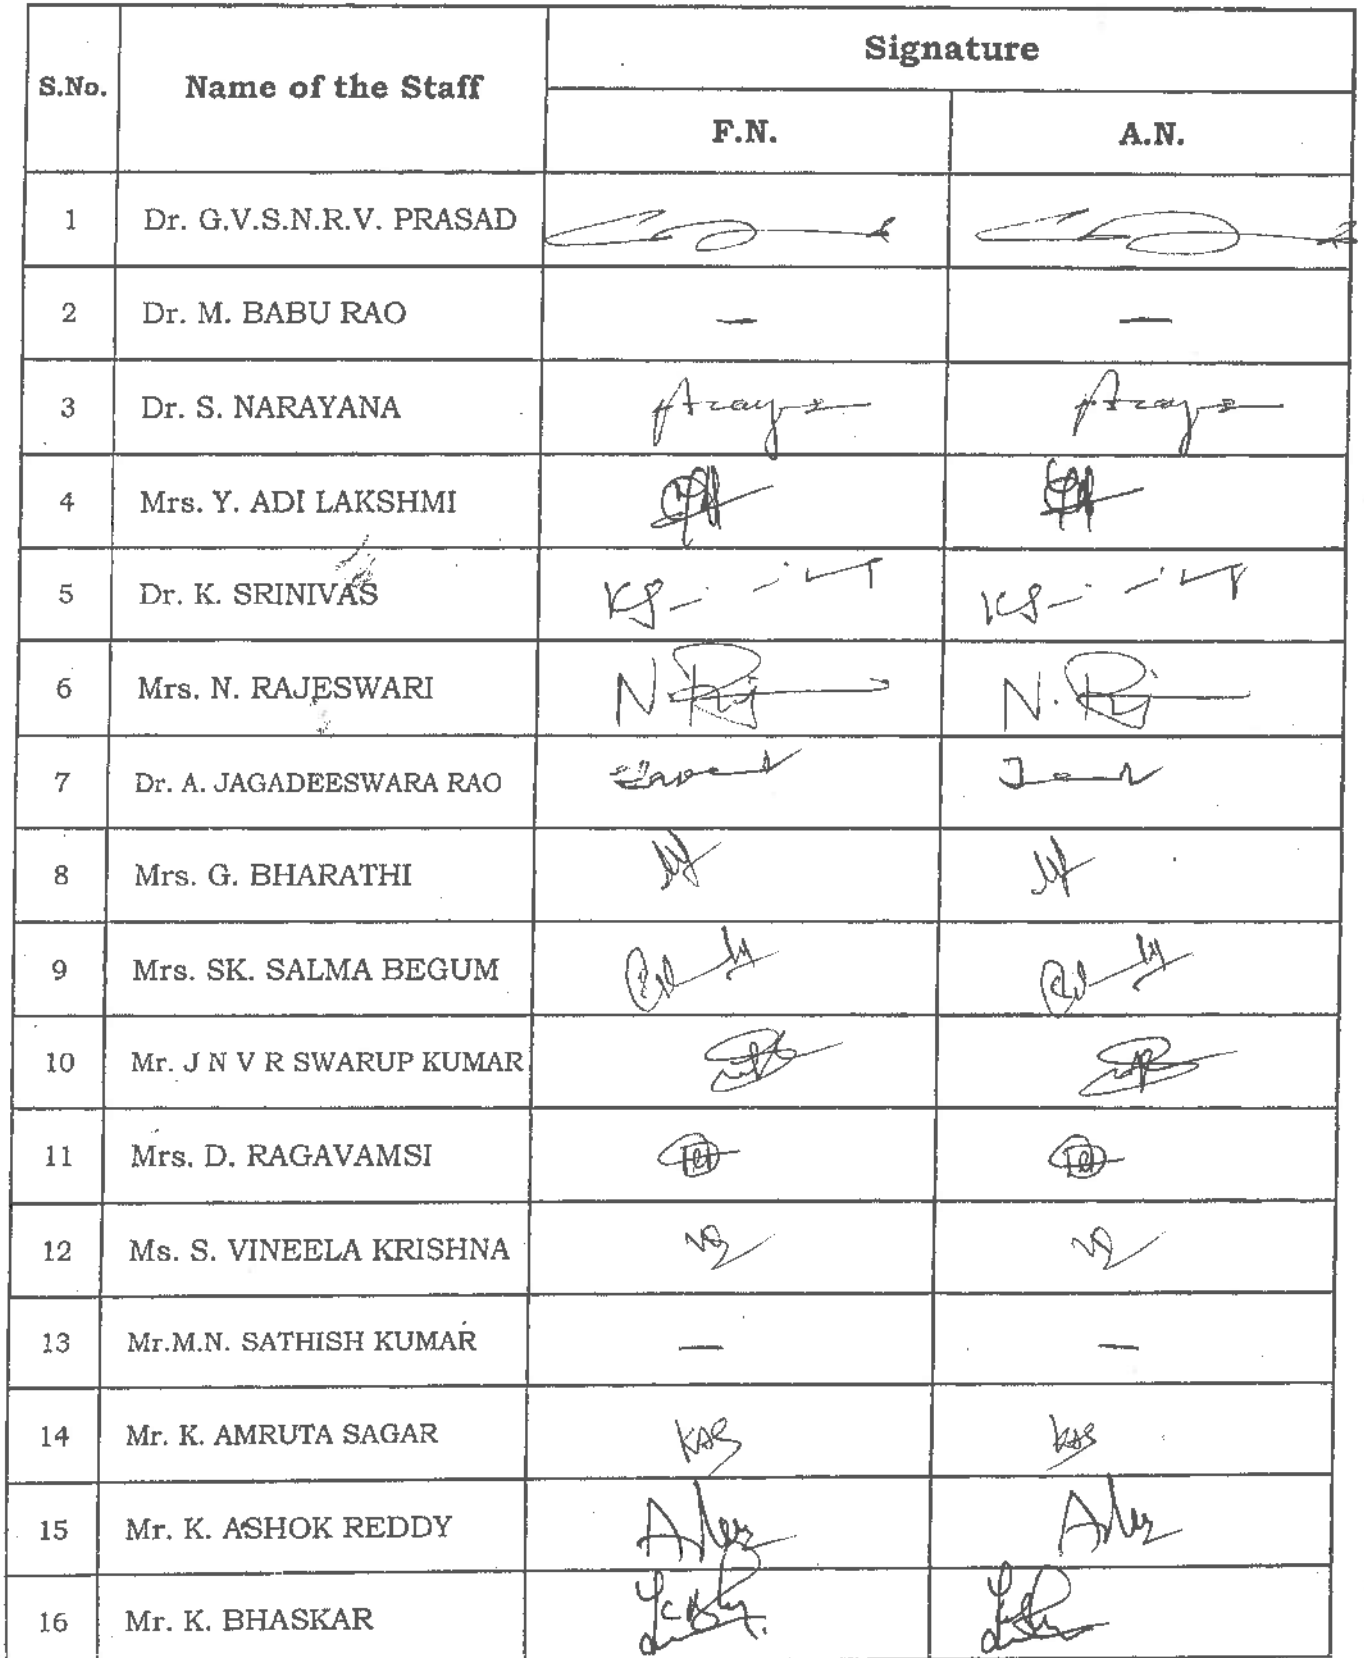 S.No. Name of the Staff Signature
F.N. A.N.
1 Dr. G.V.S.N.R.V. PRASAD
2 Dr. M. BABU RAO — —
3 Dr. S. NARAYANA
4 Mrs. Y. ADI LAKSHMI
5 Dr. K. SRINIVAS
6 Mrs. N. RAJESWARI
7 Dr. A. JAGADEESWARA RAO
8 Mrs. G. BHARATHI
9 Mrs. SK. SALMA BEGUM
10 Mr. J N V R SWARUP KUMAR
11 Mrs. D. RAGAVAMSI
12 Ms. S. VINEELA KRISHNA
13 Mr.M.N. SATHISH KUMAR — —
14 Mr. K. AMRUTA SAGAR KAS KAS
15 Mr. K. ASHOK REDDY
16 Mr. K. BHASKAR